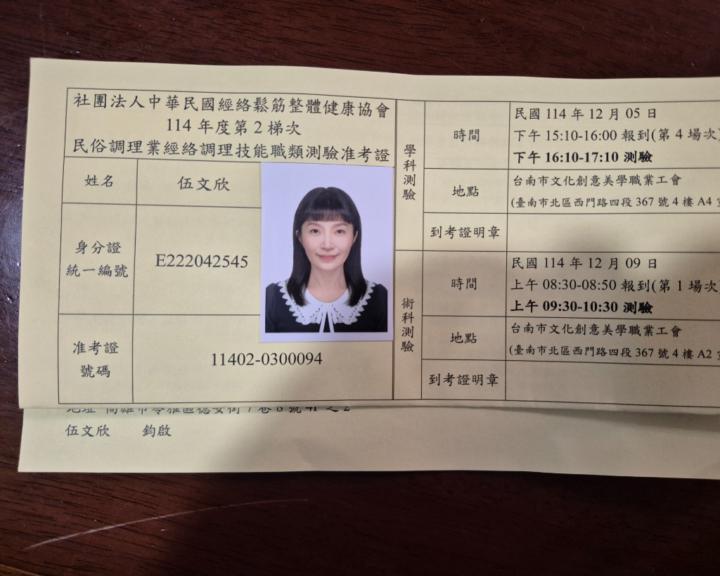 社團法人中華民國經絡鬆筋整體健康協會
114 年度第 2 梯次
民俗調理業經絡調理技能職類測驗准考證
姓名
伍文欣
身分證
統一編號
E222042545
准考證
號碼
11402-0300094
學科測驗
時間
民國 114 年 12 月 05 日
下午 15:10-16:00 報到(第 4 場次
下午 16:10-17:10 測驗
地點
台南市文化創意美學職業工會
(臺南市北區西門路四段 367 號 4 樓 A4
到考證明章
術科測驗
時間
民國 114 年 12 月 09 日
上午 08:30-08:50 報到(第 1 場次
上午 09:30-10:30 測驗
地點
台南市文化創意美學職業工會
(臺南市北區西門路四段 367 號 4 樓 A2
到考證明章
伍文欣 鈞啟